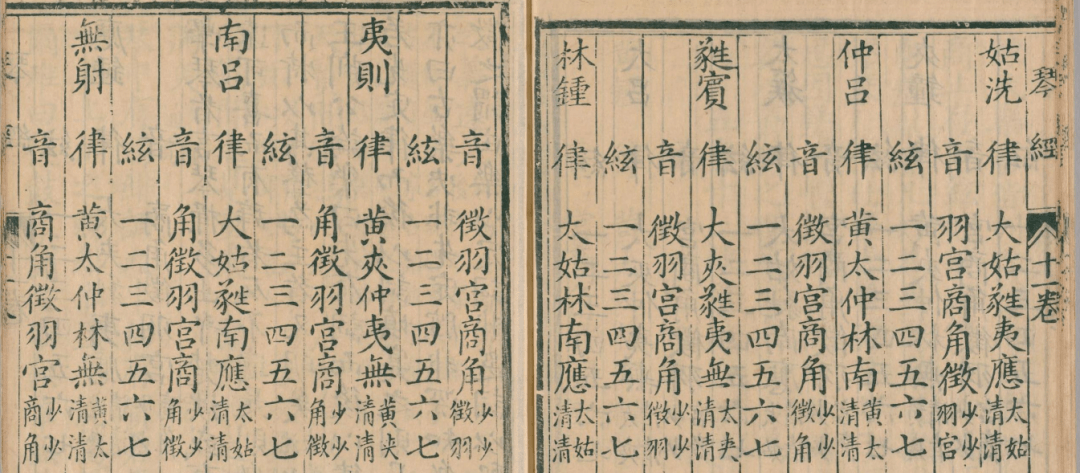 琴經 十一卷
姑洗 律 大姑蕤夷應太清姑清
音 羽宮商角徵少羽少宮
絃 一二三四五六七
仲呂 律 黃太仲林南黃清太清
音 徵羽宮商角少徵少角
絃 一二三四五六七
蕤賓 律 大夾蕤夷無太清夾清
音 徵羽宮商角少徵少羽
絃 一二三四五六七
林鍾 律 太姑林南應太清姑清
音 徵羽宮商角少徵少羽
絃 一二三四五六七
夷則 律 黃夾仲夷無黃清夾清
音 角徵羽宮商少角少徵
絃 一二三四五六七
南呂 律 大姑蕤南應太清姑清
音 角徵羽宮商少角少徵
絃 一二三四五六七
無射 律 黃太仲林無黃清太清
音 商角徵羽宮少商少角